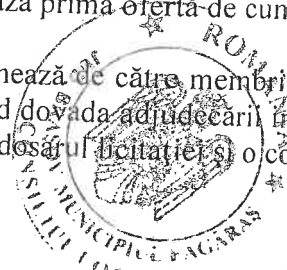 ază prima ofertă de cum
nează de către membri
d dovada adjudecării
dosarul licitației și o co
ROMÂNIA
MUNICIPIUL FĂGĂRAȘ